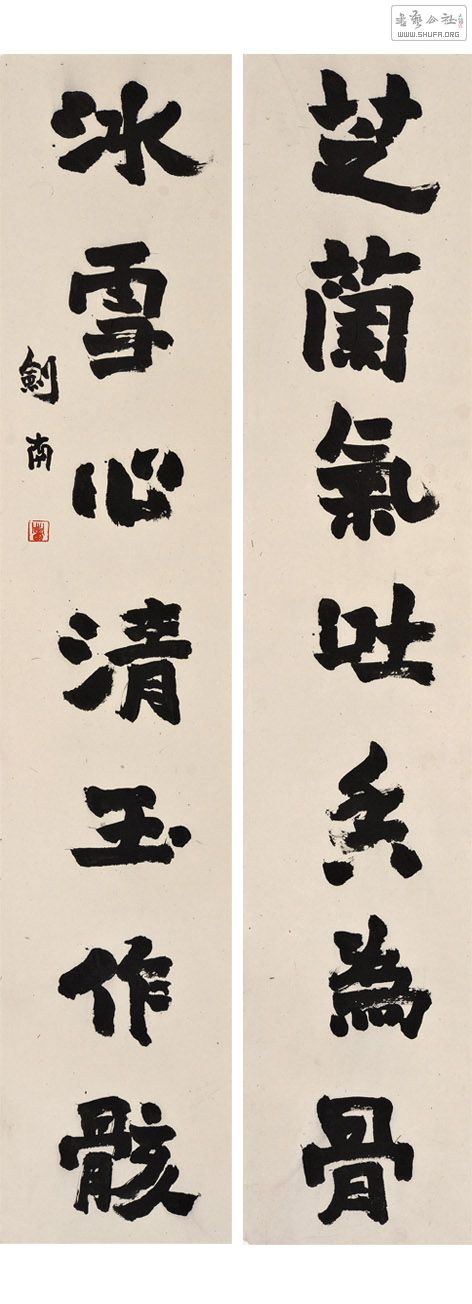 芝蘭氣吐香為骨
冰雪心清玉作骸
劍南
書藝公社
WWW.SHUFA.ORG